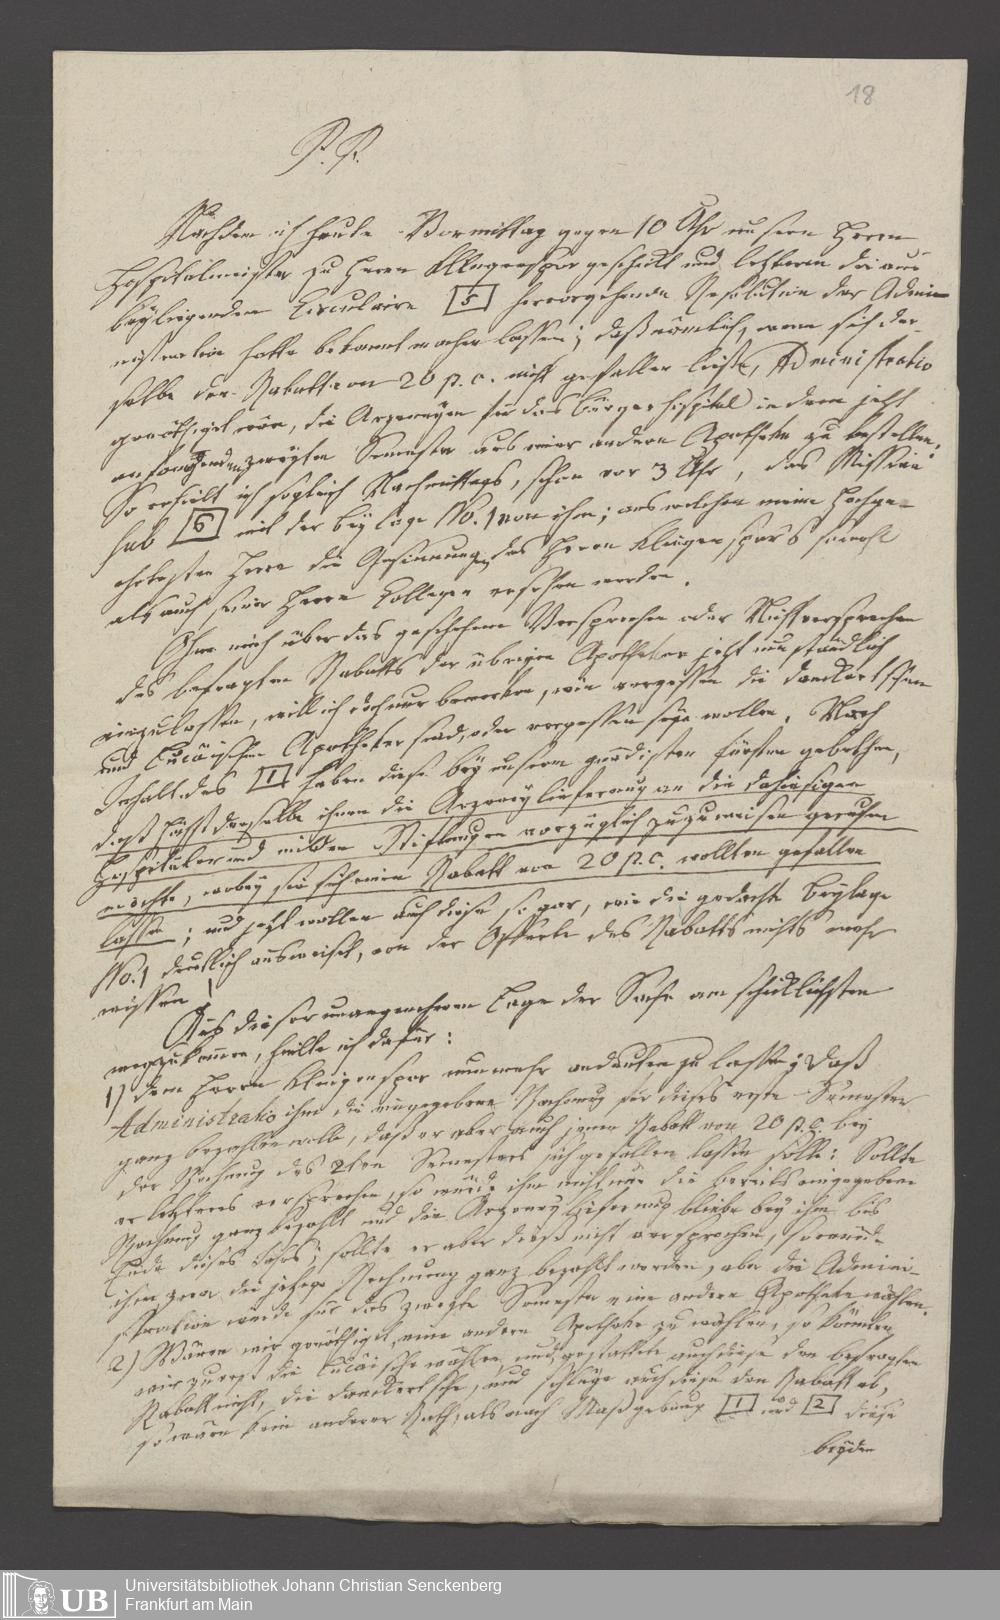 18
P. P.
Nachdem ich heute Vormittag gegen 10 Uhr unsern Herrn
Hospitalmeister zu Herrn Klingenspor geschickt und letzterm die aus
beyliegendem Circulaire [5] hervorgehende Resolution der Admi-
nistration hatte bekannt machen lassen; daß nämlich, wenn sich der-
selbe den Rabatt von 20 p. c. nicht gefallen ließe, Administratio
genöthiget wäre, die Arzeneyen für das Bürgerhospital in dem jetzt
anfangenden zweyten Semester aus einer andern Apotheke zu bestellen.
So erhielt ich sogleich Nachmittags, schon vor 3 Uhr, das Missiv
sub [6] mit der Beylage No. 1 von ihm; aus welchen meine Hochge-
ehrtesten Herrn die Gesinnungen des Herrn Klingenspor's sowohl
als auch seiner Herrn Collegen ersehen werden.
Ohne mich über das geschehene Versprechen oder Nichtversprechen
des besagten Rabatts der übrigen Apotheker jetzt umständlich
einzulassen, will ich doch nur bemerken, wie vergessen die
und Lucäischen Apotheker sind, oder vergessen seyn wollen. Nach
Inhalt des [1] haben diese bey unserm gnädigsten Fürsten gebethen,
daß Höchstderselbe ihnen die Arzeneylieferung an die dahiesigen
Hospitäler und milden Stiftungen vorzüglich zuzuweisen geruhen
möchte, wobey sie sich einen Rabatt von 20 p. c. wollten gefallen
lassen; und jetzt wollen auch diese sogar, wie die gedachte Beylage
No. 1 deutlich ausweiset, von der Offerte des Rabatts nichts mehr
wissen!
Aus dieser unangenehmen Lage der Sache am schicklichsten
wegzukommen, hielte ich dafür:
1) dem Herrn Klingenspor nunmehr andeuten zu lassen; daß
Administratio ihm die eingegebene Rechnung für dieses erste Semester
ganz bezahlen wolle, daß er aber auch jenen Rabatt von 20 p. c. bey
der Rechnung des 2ten Semesters sich gefallen lassen solle: Sollte
er letzteres versprechen, so würde ihm nicht nur die bereits eingegebene
Rechnung ganz bezahlt und die Arzeney Lieferung bliebe bey ihm bis
Ende dieses Jahrs; sollte er aber dieß nicht versprechen, so würde
ihm zwar die jetzige Rechnung ganz bezahlt werden, aber die Admini-
stration würde für das zweyte Semester eine andere Apotheke wählen.
2) Wären wir genöthiget, eine andere Apotheke zu wählen, so könnten
wir zuerst die Lucäische wählen, und gestattete auch diese den besagten
Rabatt nicht, die und schlüge auch diese den Rabatt ab,
so wäre kein anderer Rath, als nach Maßgebung [1] und [2] diese
beyden
UB
Universitätsbibliothek Johann Christian Senckenberg
Frankfurt am Main